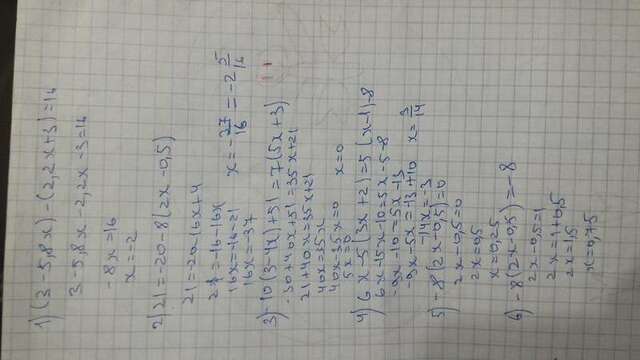 1) (3-5,8x)-(2,2x+3)=16
3-5,8x-2,2x-3=16
-8x=16
x=-2
2) 21=20-8(2x-0,5)
21=20-16x+4
16x=-37
x=-37/16=-2 5/16
3) -10(3-4x)+51=7(5x+3)
-30+40x+51=35x+21
21+40x=35x+21
40x=35x
40x-35x=0
5x=0
x=0
4) 6x-5(3x+2)=5(x-1)-8
6x-15x-10=5x-5-8
-9x-10=5x-13
-9x-5x=-13+10
-14x=-3
x=3/14
5) -8(2x-0,5)=0
2x-0,5=0
2x=0,5
x=0,25
6) -8(2x-0,5)=-8
2x-0,5=1
2x=1+0,5
2x=1,5
x=0,75